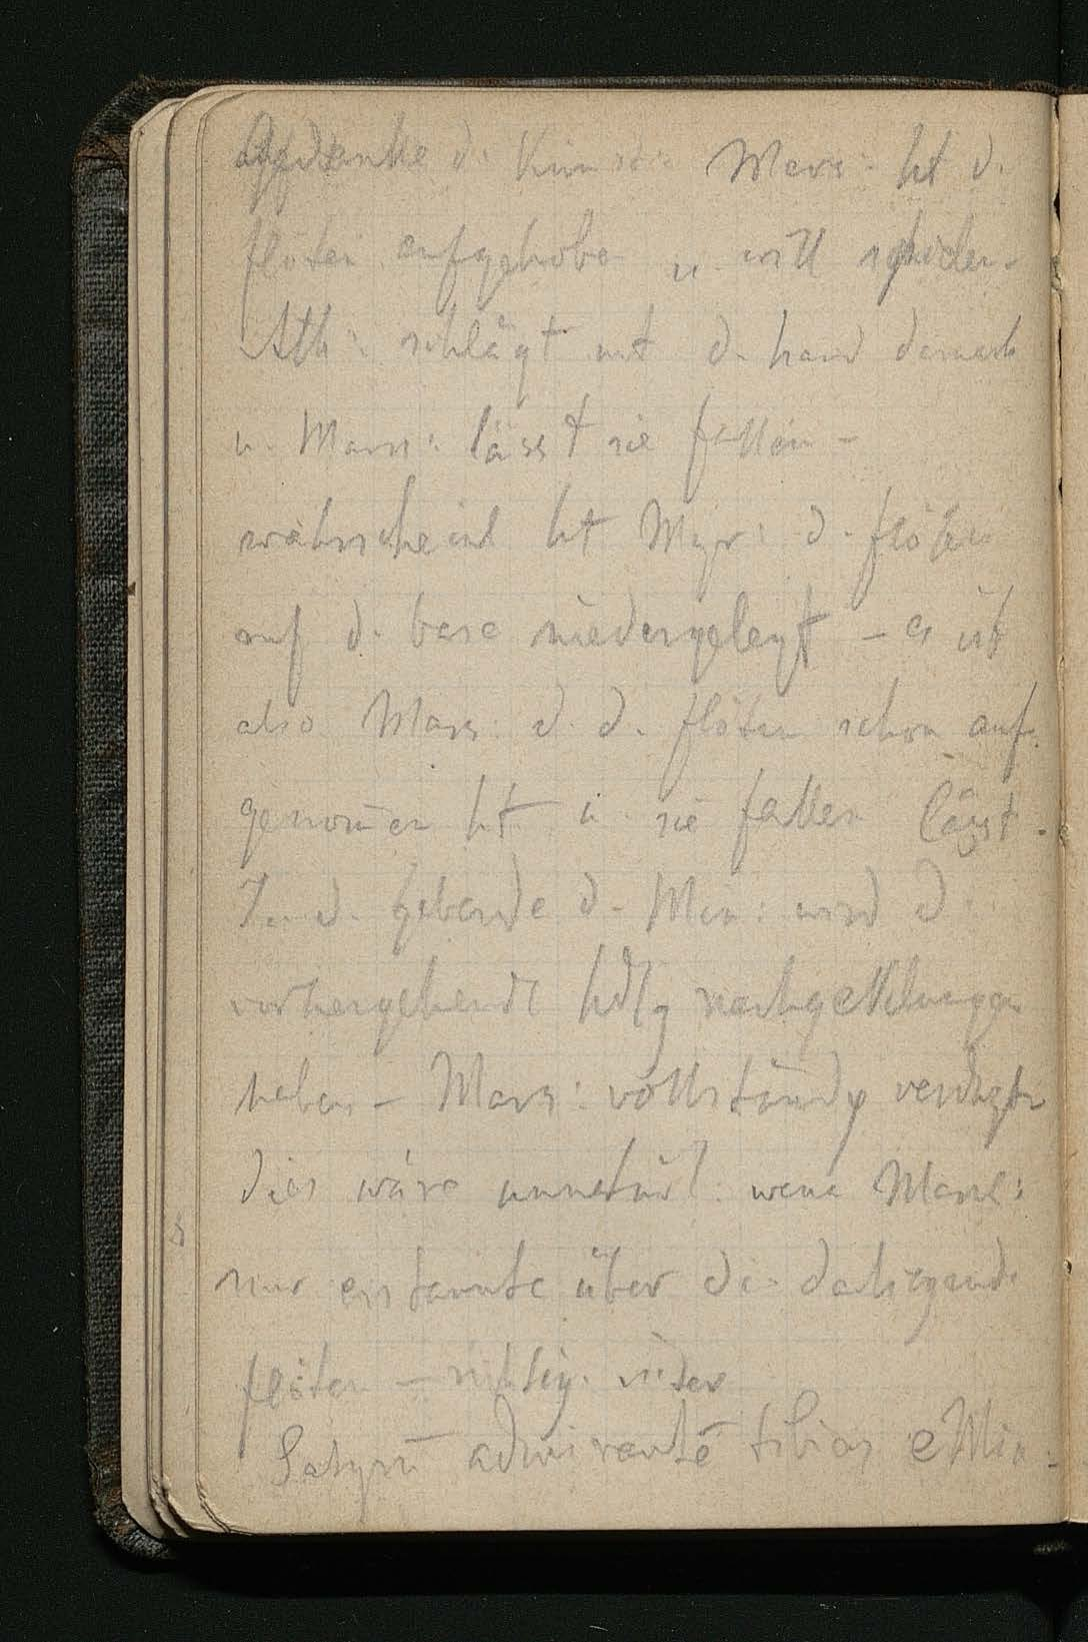 Gedanke d. Künstl: Mars: ht d.
flöten aufgehobe u. will spielen -
Ath: schlägt mt d. hand danach
u. Mars: lässt sie fallen -
wahrscheinl ht Myr: d. flöten
auf d. base niedergelegt - es ist
also Mars: d. d. flöten schon auf-
genom̄en ht u. sie fallen lässt.
In d. geberde d. Min: wird d
vorhergehende hdlg nachgeklungen
haben - Mars: vollständg
dies wäre unnatürl. wenn Mars:
nur erstaunte über die daliegende
flöten - richtig. wider
Satyrū admirantē tibias e Min-